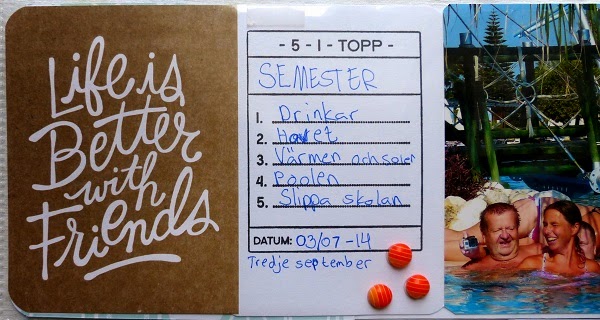 Life is
Better
with
Friends
- 5 - I - TOPP -
SEMESTER
1. Drinkar
2. Havet
3. Värmen och solen
4. Poolen
5. Slippa skolan
DATUM: 03/07 -14
Tredje september